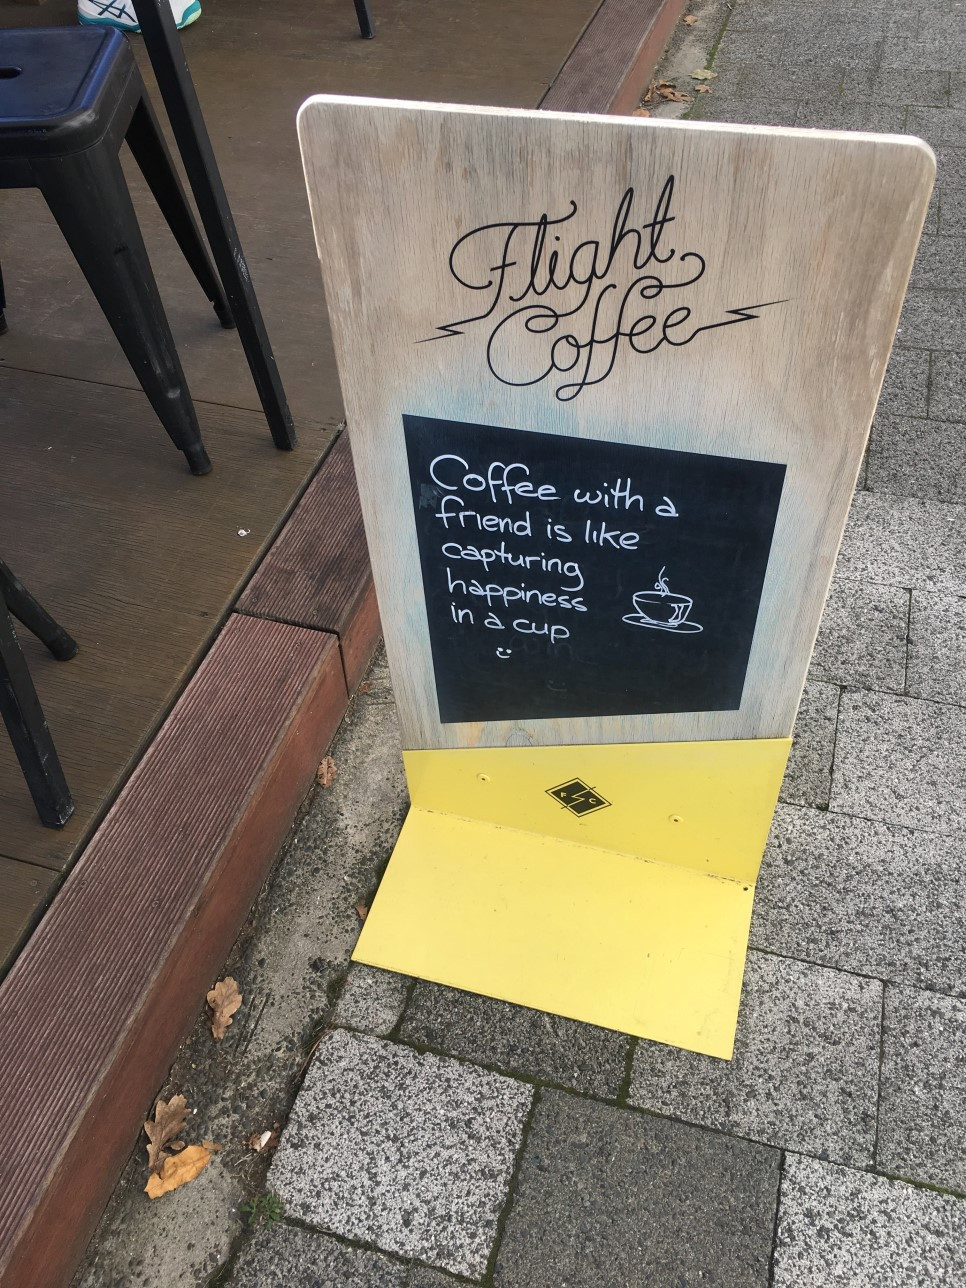 Flight
Coffee
Coffee with a
friend is like
capturing
happiness
in a cup
F C